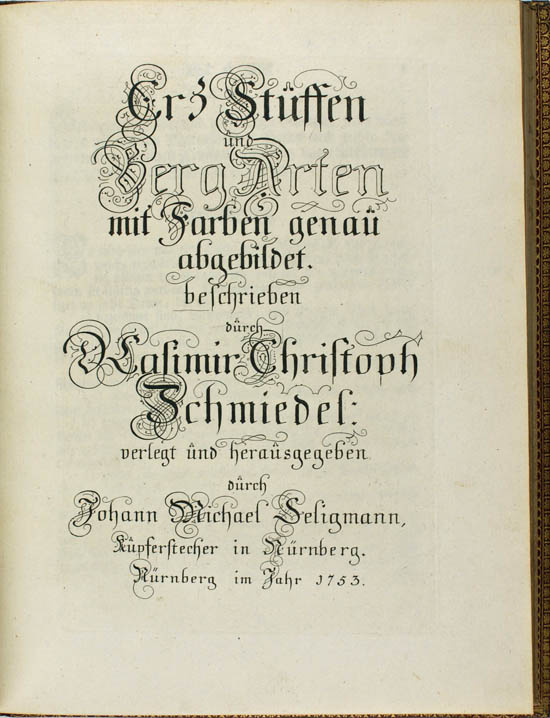 Erz Stüffen
und
Berg Arten
mit Farben genaü
abgebildet.
beſchrieben
dürch
Casimir Chriſtoph
Schmiedel:
verlegt ünd heraüsgegeben
dürch
Johann Michael Seligmann,
Küpferstecher in Nürnberg.
Nürnberg im Jahr 1753.